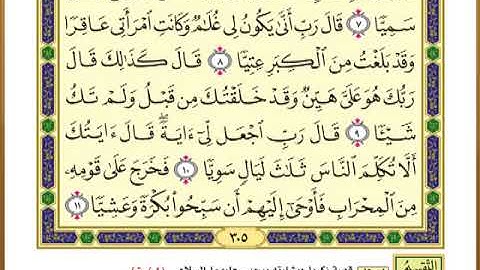 سَمِيًّا ٧ قَالَ رَبِّ أَنَّىٰ يَكُونُ لِى غُلَٰمٌ وَكَانَتِ ٱمْرَأَتِى عَاقِرًا
وَقَدْ بَلَغْتُ مِنَ ٱلْكِبَرِ عِتِيًّا ٨ قَالَ كَذَٰلِكَ قَالَ
رَبُّكَ هُوَ عَلَىَّ هَيِّنٌ وَقَدْ خَلَقْتُكَ مِن قَبْلُ وَلَمْ تَكُ
شَيْـًٔا ٩ قَالَ رَبِّ ٱجْعَل لِّىٓ ءَايَةً ۚ قَالَ ءَايَتُكَ
أَلَّا تُكَلِّمَ ٱلنَّاسَ ثَلَٰثَ لَيَالٍ سَوِيًّا ١٠ فَخَرَجَ عَلَىٰ قَوْمِهِۦ
مِنَ ٱلْمِحْرَابِ فَأَوْحَىٰٓ إِلَيْهِمْ أَن سَبِّحُوا۟ بُكْرَةً وَعَشِيًّا ١١
٣٠٥